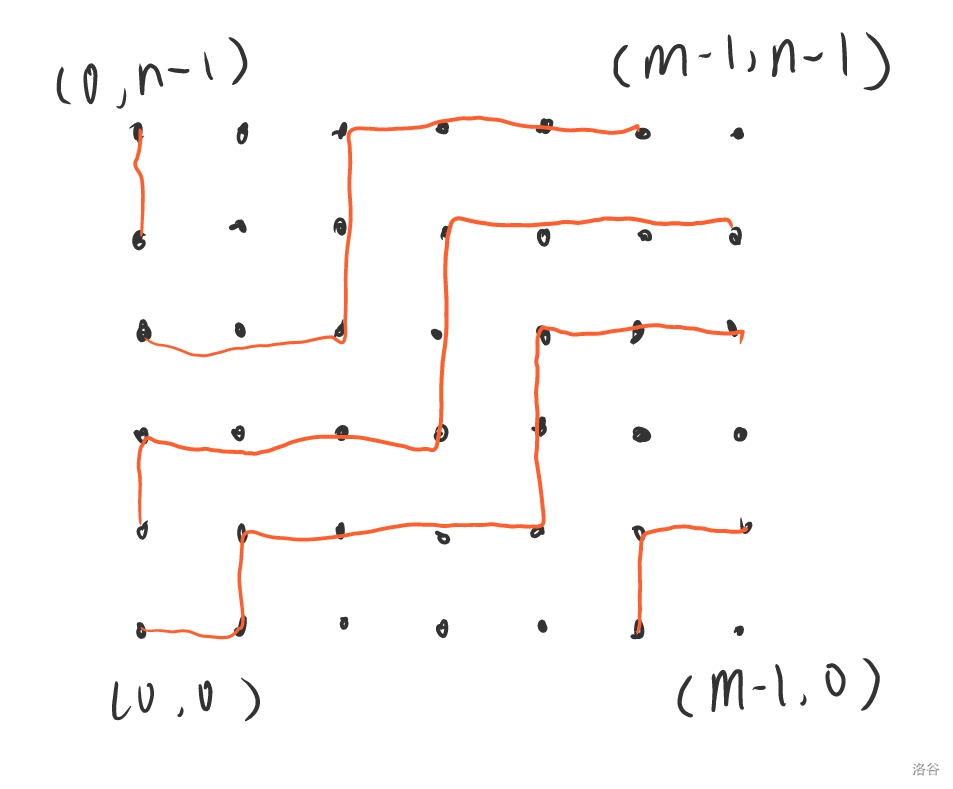 (0,n-1) (m-1,n-1)
(0,0) (m-1,0)
洛谷